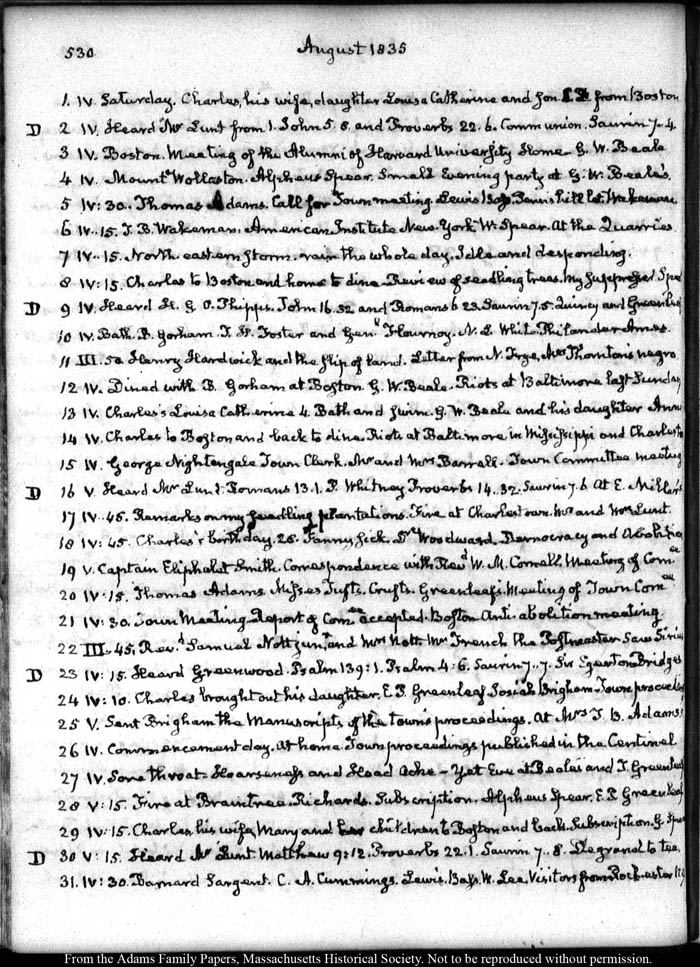 530 August 1835
1. IV. Saturday. Charles, his wife, daughter Louisa Catherine and son from Boston
D 2 IV. Heard Mr Lunt from 1. John 5. 8. and Proverbs 22. 6. Communion. Saurin 7. 4
3 IV. Boston. Meeting of the Alumni of Harvard University Home G. W. Beale
4 IV. Mount Wollaston. Alpheus Spear. Small Evening party at G. W. Beale's.
5 IV: 30. Thomas Adams. Call for Town meeting. Lewis Bass. Penn's hill lot Wakeman
6 IV. 15. T. B. Wakeman. American Institute New York W. Spear. At the Quarries
7 IV. 15. North eastern storm. rain the whole day. Idle and desponding.
8 IV: 15. Charles to Boston and home to dine. Review of seedling trees. My suppressed
D 9 IV. Heard H. G. O. Phipps. John 16. 32 and Romans 6 23. Saurin 7. 5. Quincy and
10 IV. Bath. B. Gorham. T. H. Foster and Genl Flournoy. N. L White. Philander Ames.
11 III. 50. Henry Hardwick and the slip of land. Letter from N. Frye. Mrs Thornton's negro
12 IV. Dined with B. Gorham at Boston. G. W. Beale. Riots at Baltimore last Sunday
13 IV. Charles's Louisa Catherine 4. Bath and swim. G. W. Beale and his daughter Ann
14 IV. Charles to Boston and back to dine. Riots at Baltimore in Mississippi and
15 IV. George Nightengale Town Clerk. Mr and Mrs Barrell. Town Committee meeting
D 16 V. Heard Mr Lunt. Romans 13. 1. P. Whitney Proverbs 14. 32. Saurin 7. 6 At E. Miller's
17 IV. 45. Remarks on my seedling plantations. Fire at Charlestown. Mr and Mrs Lunt.
18 IV: 45. Charles's birth day. 28. Fanny sick. Dr Woodward. Democracy and
19 V. Captain Eliphalet Smith. Correspondence with Revd W. M. Cornell. Meeting of Comee
20 IV: 15. Thomas Adams. Misses Tufts. Crufts. Greenleafs. Meeting of Town Comee
21 IV: 30. Town Meeting. Report of Comee accepted. Boston Anti-abolition meeting.
22 III. 45. Revd Samuel Nott junr and Mrs Nott. Mr French the Postmaster Saw
D 23 IV: 15. Heard Greenwood. Psalm 139: 1. Psalm 4: 6. Saurin 7. 7. Sir Egerton Bridges
24 IV: 10. Charles brought out his daughter. E. P. Greenleaf Josiah Brigham. Town
25 V. Sent Brigham the Manuscripts of the town's proceedings. At Mrs T. B. Adams's
26 IV. Commencement day. At home. Town proceedings published in the Centinel
27 IV. Sore throat. Hoarseness and Head Ache - Yet Eve at Beales and T. Greenleaf
28 V: 15. Fire at Braintree. Richards. Subscription. Alpheus Spear. E. P. Greenleaf
29 IV: 15. Charles, his wife, Mary and her children to Boston and back. Subscription. G.
D 30 V: 15. Heard Mr Lunt. Matthew 9: 12. Proverbs 22. 1. Saurin 7. 8. Degrand to tea.
31. IV: 30. Barnard Sargent. C. A. Cummings. Lewis. Bass. W. Lee. Visitors from Rochester
From the Adams Family Papers, Massachusetts Historical Society. Not to be reproduced without permission.